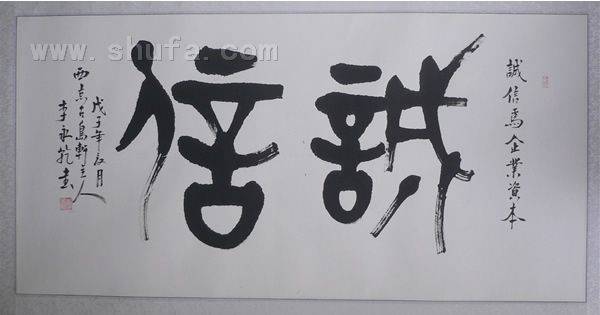 www.shufa.com
誠信為企業資本
誠信
戊子年月
西古軒主人
李永書